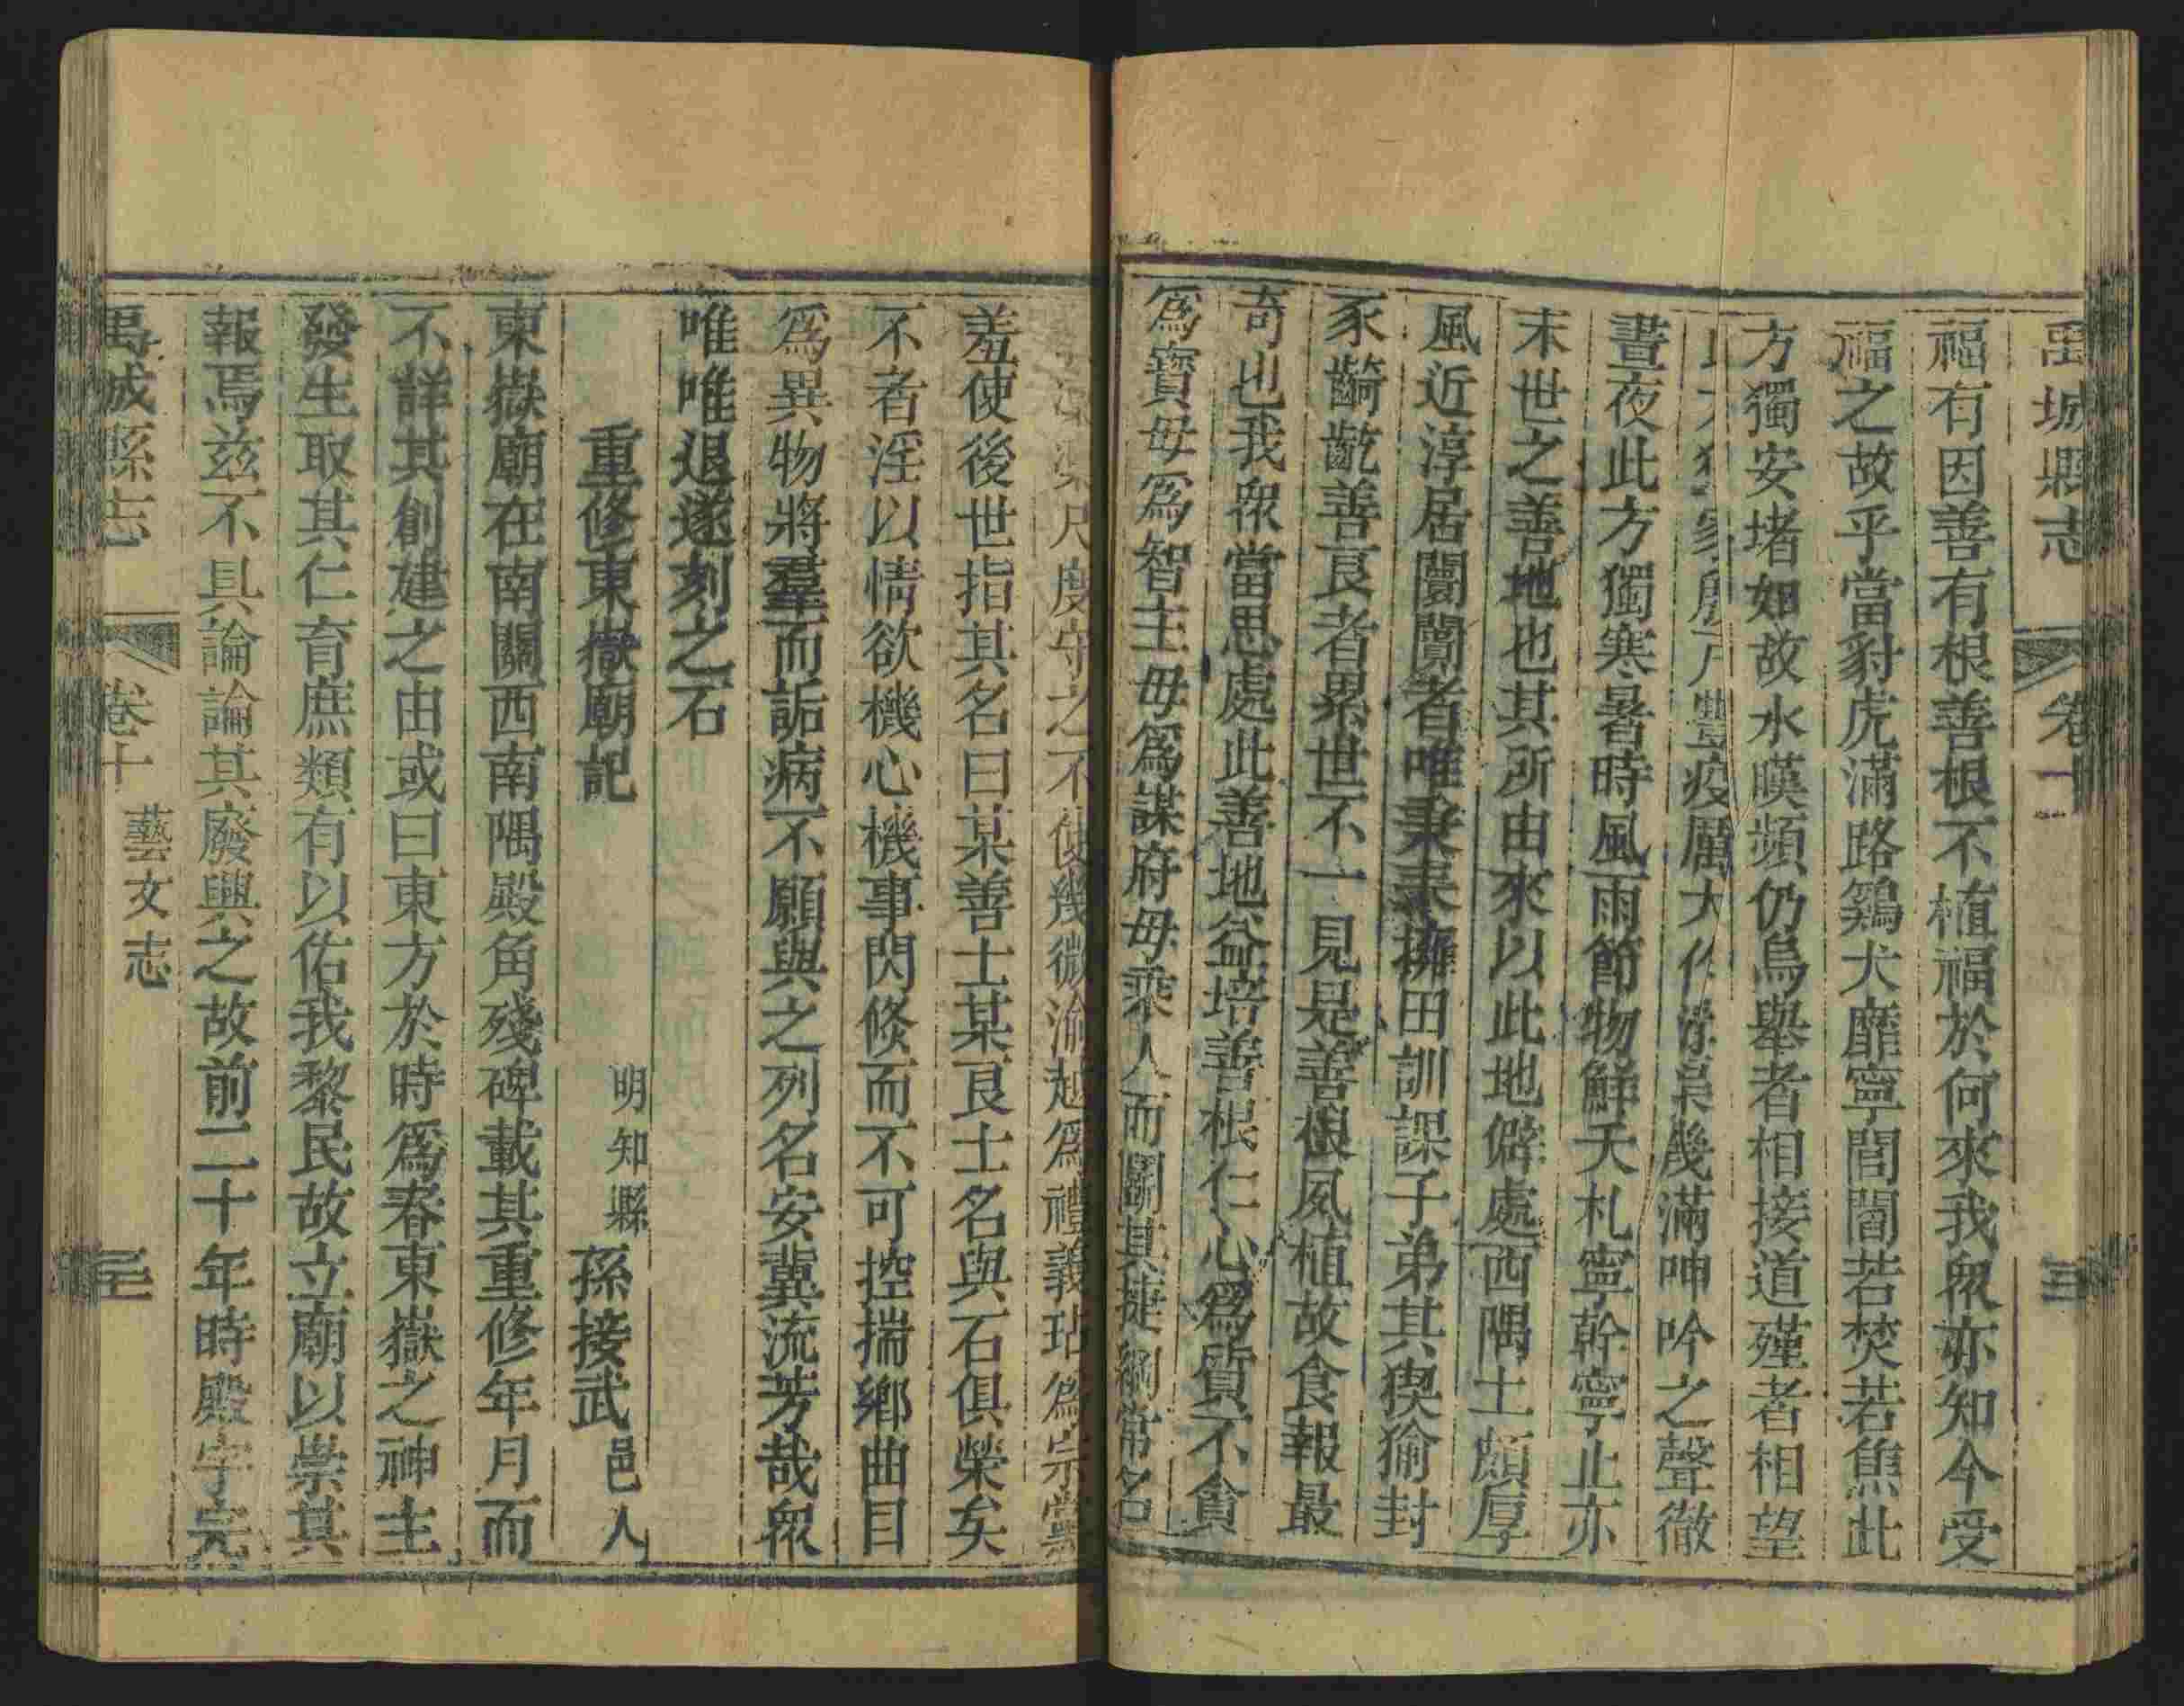 禹城縣志 卷十
福有因善有根善根不植福於何來我衆亦知今受
福之故乎當豺虎滿路鷄犬靡寧閭閻若焚若焦此
方獨安堵如故水暵頻仍烏舉者相接道殣者相望
疫厲大作 幾滿呻吟之聲徹
晝夜此方獨寒暑時風雨節物鮮夭札寧幹寧止亦
末世之善地也其所由來以此地僻處西隅土頗厚
風近淳居闤闠者唯秉耒擁田訓課子弟其猰㺄封
豕齮齕善良者累世不一見是善根夙植故食報最
奇也我衆當思處此善地益培善根仁心爲質不貪
爲寶毋爲智主毋爲謀府毋乘人而鬬其捷綱常名
尺度守之不使幾微渝越爲禮義玷爲宗黨
羞使後世指其名曰某善士某良士名與石俱榮矣
不者淫以情欲機心機事閃倐而不可控揣鄉曲目
爲異物將羣而詬病不願與之列名安冀流芳哉衆
唯唯退遂刻之石
重修東嶽廟記
明知縣孫接武邑人
東嶽廟在南關西南隅殿角殘碑載其重修年月而
不詳其創建之由或曰東方於時爲春東嶽之神主
發生取其仁育庶類有以佑我黎民故立廟以崇其
報焉兹不具論論其廢興之故前二十年時殿宇完
禹城縣志 卷十 藝文志